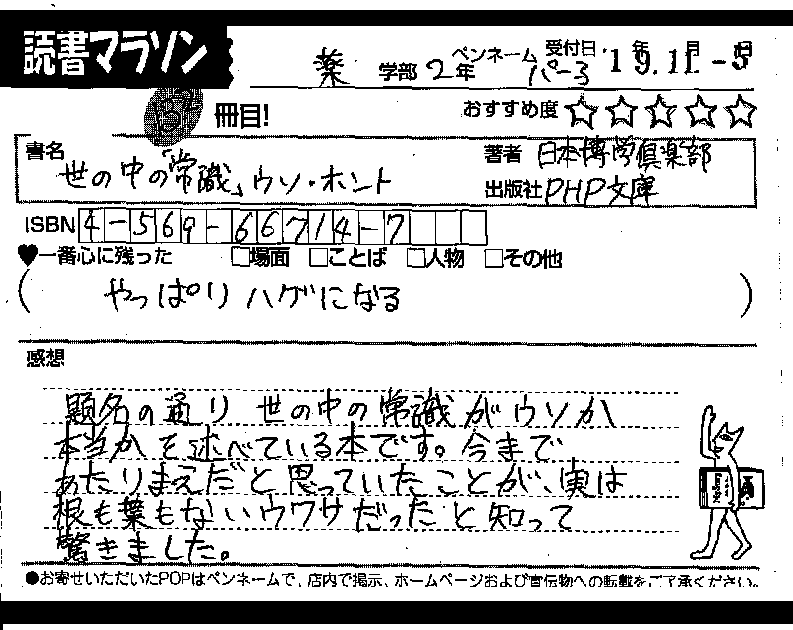 読書マラソン
薬 学部 2年 ペンネーム パーる 受付日 '19.11.-5
冊目! おすすめ度 ☆☆☆☆☆
書名 世の中の「常識」ウソ・ホント
著者 日本博学倶楽部
出版社 PHP文庫
ISBN 4-569-66714-7
♥一番心に残った □場面 □ことば □人物 □その他
( やっぱりハゲになる )
感想
題名の通り 世の中の常識がウソか
本当かを述べている本です。今まで
あたりまえだと思っていたことが、実は
根も葉もないウワサだったと知って
驚きました。
●お寄せいただいたPOPはペンネームで、店内で掲示、ホームページおよび宣伝物への転載をご了承ください。